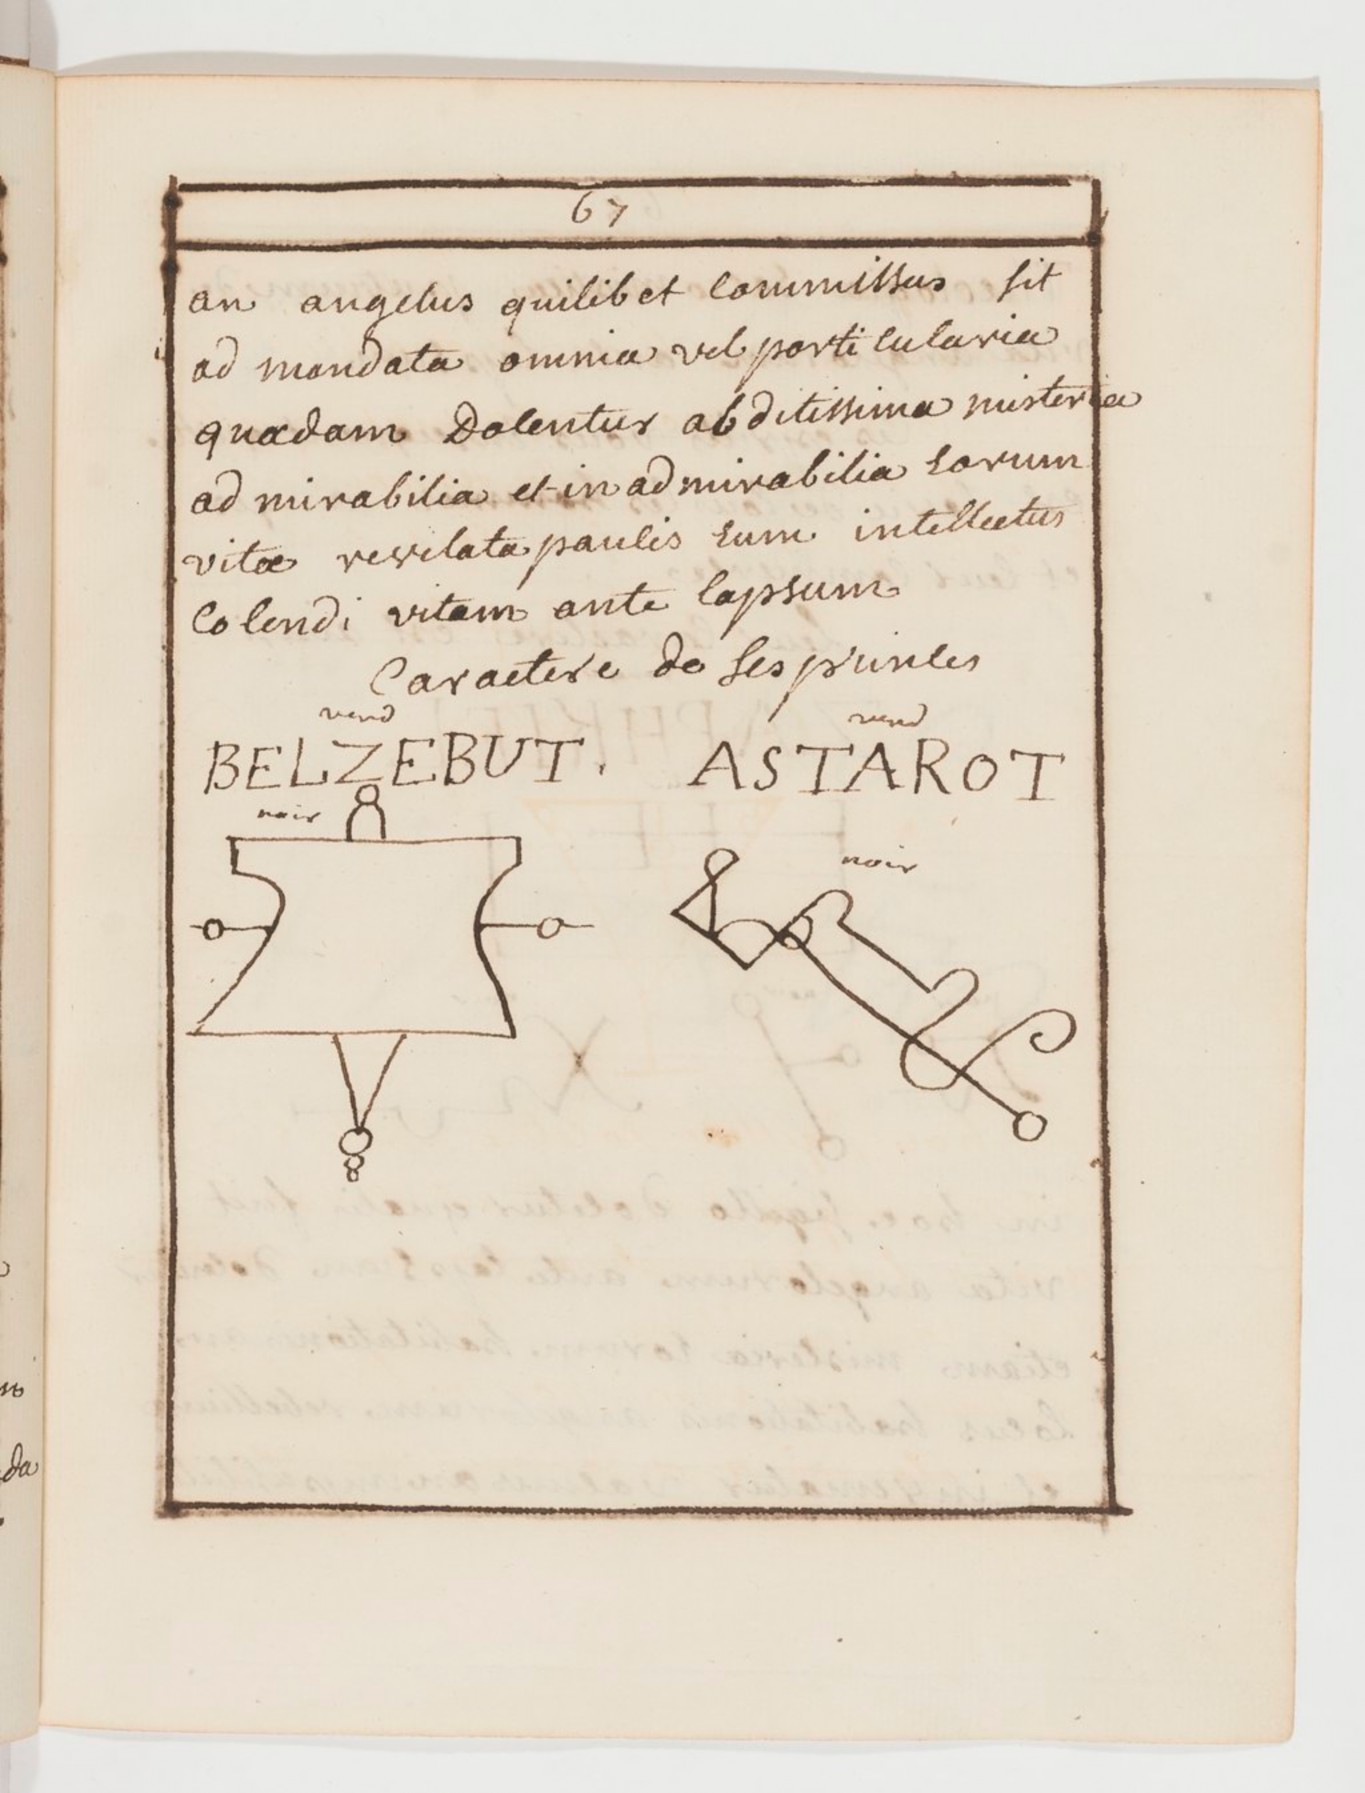 67
an angelus quilibet commissus sit
ad mandata omnia vel particularia
quædam Docentur abditissima misteria
admirabilia et inadmirabilia eorum
vitæ revelata paucis cum intellectus
Colendi vitam ante lapsum
Caractere de ses princes
verd verd
BELZEBUT. ASTAROT
noir
noir